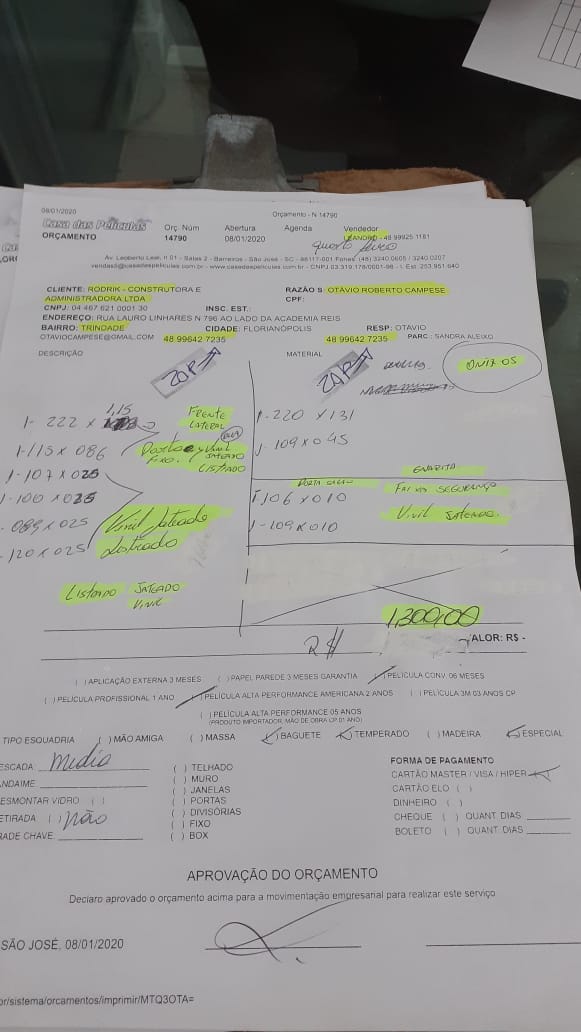 08/01/2020
Orçamento - N 14790
Casa das Películas
ORÇAMENTO
Orç. Núm
14790
Abertura
08/01/2020
Agenda
Vendedor
LEANDRO - 48 99925 1181
Av. Leoberto Leal, n 01 - Salas 2 - Barreiros - São José - SC - 88117-001 Fones (48) 3240.0605 / 3240 0207
vendas5@casadaspeliculas.com.br - www.casadaspeliculas.com.br - CNPJ 03.319.178/0001-98 - I. Est. 253 951 640
CLIENTE: RODRIK - CONSTRUTORA E
ADMINISTRADORA LTDA
RAZÃO S: OTAVIO ROBERTO CAMPESE
CPF:
CNPJ: 04 467 621 0001 30
INSC. EST.:
ENDEREÇO: RUA LAURO LINHARES N 796 AO LADO DA ACADEMIA REIS
BAIRRO: TRINDADE
CIDADE: FLORIANÓPOLIS
RESP: OTAVIO
OTAVIOCAMPESE@GMAIL.COM
48 99642 7235
48 99642 7235
PARC: SANDRA ALEIXO
DESCRIÇÃO
MATERIAL
ONIX 05
1- 222 x 1,15
FRENTE
LATERAL
1-115 x 086
FIXO.
JATEADO
LISTRADO
1-107 x 025
1-100 x 025
- 089 x 025
Vinil Jateado
- 120 x 025
Listrado
LISTRADO JATEADO
VINIL
1-220 x 131
1-109 x 045
GUARITA
1-106 x 010
FAIXA SEGURANÇA
1-109 x 010
Vinil JATEADO.
1.300,00
R$
ALOR: R$ -
( ) APLICAÇÃO EXTERNA 3 MESES ( ) PAPEL PAREDE 3 MESES GARANTIA PELÍCULA CONV. 06 MESES
( ) PELÍCULA PROFISSIONAL 1 ANO PELÍCULA ALTA PERFORMANCE AMERICANA 2 ANOS ( ) PELÍCULA 3M 03 ANOS CP
( ) PELÍCULA ALTA PERFORMANCE 05 ANOS
(PRODUTO IMPORTADOR, MÃO DE OBRA CP 01 ANO)
TIPO ESQUADRIA ( ) MÃO AMIGA ( ) MASSA BAGUETE TEMPERADO ( ) MADEIRA ESPECIAL
ESCADA media
ANDAIME
ESMONTAR VIDRO ( )
ETIRADA ( ) não
RADE CHAVE
( ) TELHADO
( ) MURO
( ) JANELAS
( ) PORTAS
( ) DIVISÓRIAS
( ) FIXO
( ) BOX
FORMA DE PAGAMENTO
CARTÃO MASTER / VISA / HIPER
CARTÃO ELO ( )
DINHEIRO ( )
CHEQUE ( ) QUANT DIAS
BOLETO ( ) QUANT. DIAS
APROVAÇÃO DO ORÇAMENTO
Declaro aprovado o orçamento acima para a movimentação empresarial para realizar este serviço
SÃO JOSÉ, 08/01/2020
or/sistema/orcamentos/imprimir/MTQ3OTA=